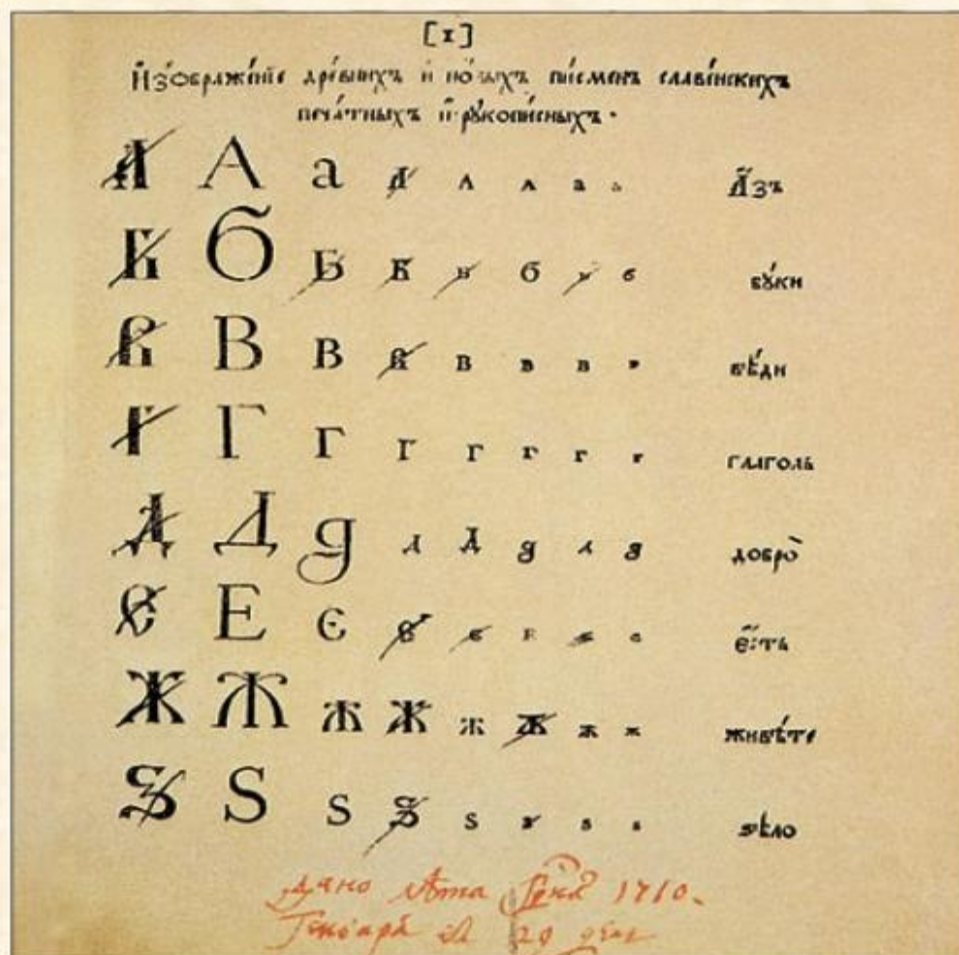 [1]
И҆зѡбраже́нїе дре́внихъ и҆ но́выхъ пи́сменъ славе́нскихъ
печа́тныхъ и҆ рꙋкопи́сныхъ.
А А а А а а а а А҆́зъ
Б Б Б Б б б б б бꙋ́ки
В В в В в в в в вѣ́ди
Г Г г г г г г г глаголь
Д Д д д д д д д добро̀
Є Е є є є е є є є҆́сть
Ж Ж ж Ж ж ж ж ж живѣ́те
Ѕ Ѕ ѕ Ѕ ѕ ѕ ѕ ѕ ѕѣло
дано лѣта 1710.